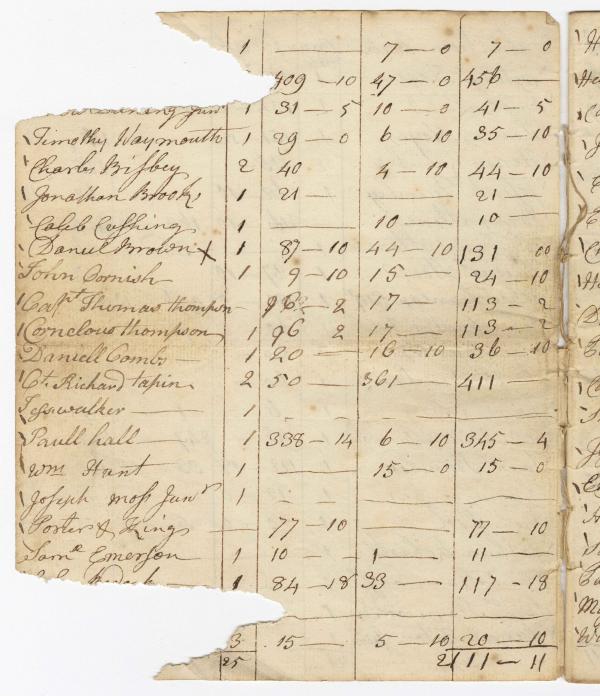 1 — 7 — 0 7 — 0
409 — 10 47 — 0 456 —
Junr 1 31 — 5 10 — 0 41 — 5
Timothy Waymouth 1 29 — 0 6 — 10 35 — 10
Charls Bisbey 2 40 4 — 10 44 — 10
Jonathan Brooks 1 21 — 21 —
Caleb Cushing 1 — 10 — 10 —
Daniel Brown x 1 87 — 10 44 — 10 131 00
John Cornish 1 9 — 10 15 — 24 — 10
Capt Thomas thompson — 96 — 2 17 — 113 — 2
Cornelous thompson 1 96 2 17 — 113 — 2
Daniell Combs — 1 20 — 16 — 10 36 — 10
Ct. Richard tapin 2 50 — 361 — 411 —
walker — 1 — — —
Paull hall — 1 338 — 14 6 — 10 345 — 4
Wm Hunt 1 — 15 — 0 15 — 0
Joseph moss Junr 1 — — —
Porter & King — 77 — 10 — 77 — 10
Saml Emerson 1 10 — 1 — 11 —
1 84 — 18 33 — 117 — 18
3 15 — 5 — 10 20 — 10
25 2111 — 11